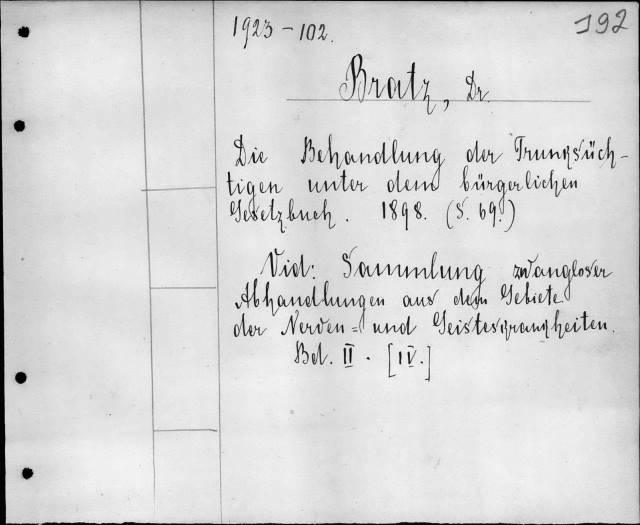 1923-102.
192
Bratz, Dr.
Die Behandlung der Trunksüch-
tigen unter dem bürgerlichen
Gesetzbuch. 1898. (S. 69.)
Vid: Sammlung zwangloser
Abhandlungen aus dem Gebiete
der Nerven= und Geisteskrankheiten.
Bd. II. [IV.]